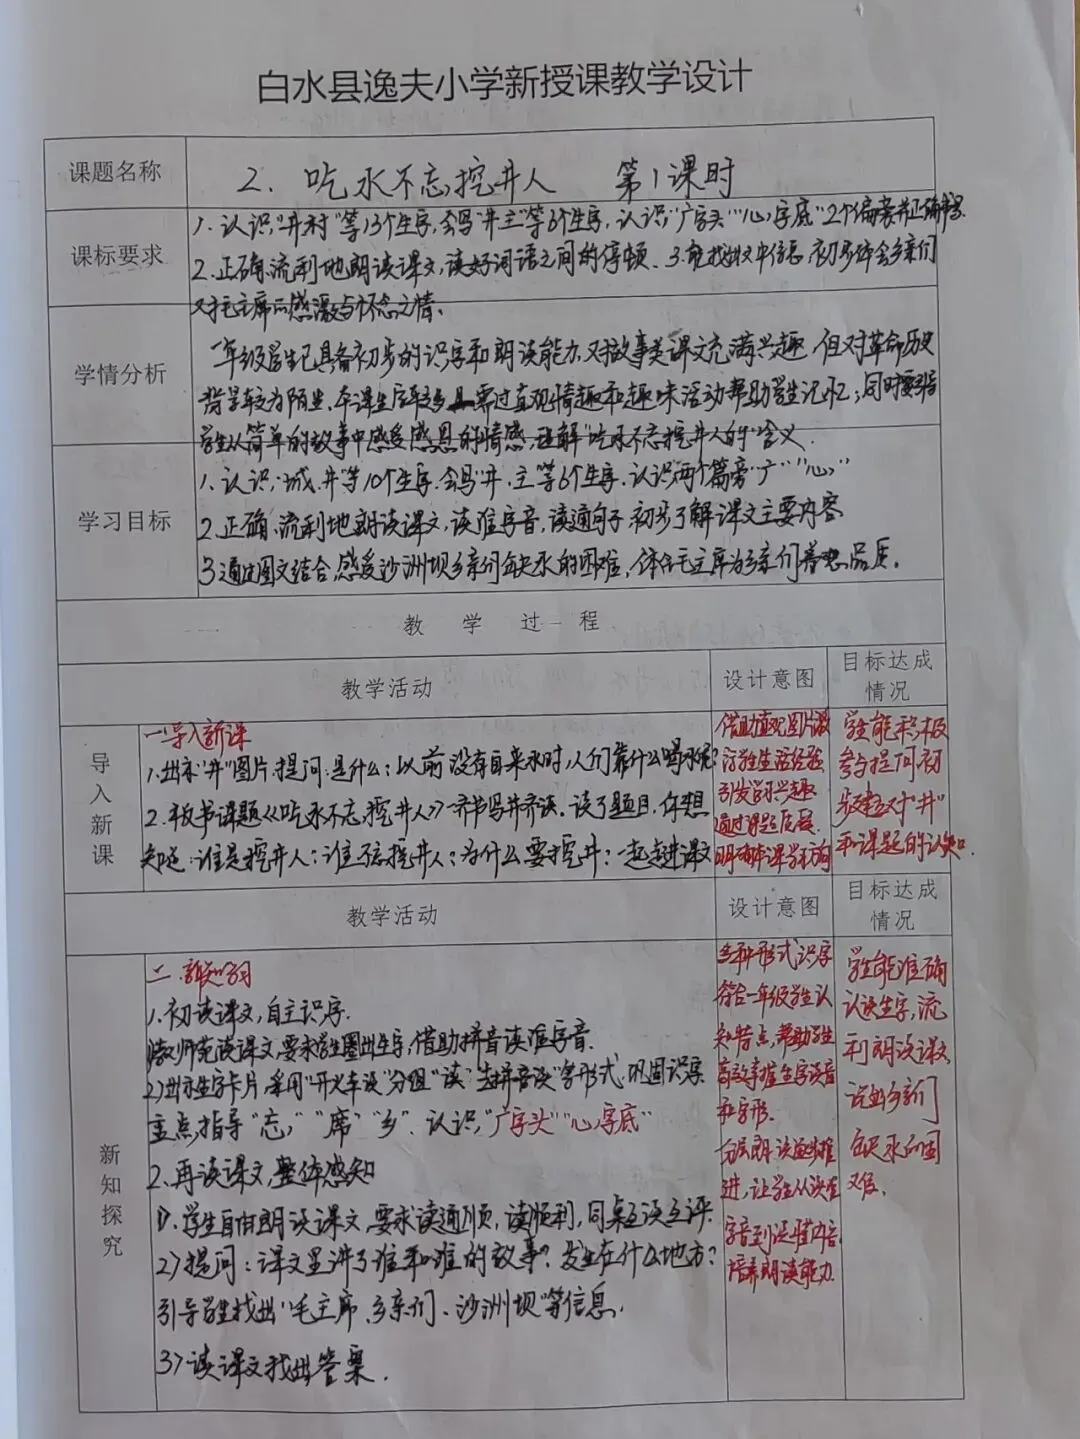 白水县逸夫小学新授课教学设计
课题名称
2. 吃水不忘挖井人 第1课时
课标要求
1. 认识"井村"等13个生字,会写"井主"等6个生字,认识"广字头""心字底"2个偏旁并正确书写.
2. 正确、流利地朗读课文,读好词语之间的停顿. 3. 文中信息,初步体会乡亲们
对毛主席的感激与怀念之情.
学情分析
一年级学生已具备初步的识字和朗读能力,对故事类课文充满兴趣,但对革命历史
背景较为陌生,本课生字较多,需过直观情趣和趣味活动帮助学生记忆;同时要引导
学生从简单的故事中感受感恩的情感,理解"吃水不忘挖井人的"含义.
学习目标
1. 认识"城、井"等10个生字.会写"井、主"等6个生字.认识两个篇旁"广""心"
2. 正确、流利地朗读课文,读准字音,读通句子,初步了解课文主要内容
3. 通过图文结合,感受沙洲坝乡亲们缺水的困难,体会毛主席为乡亲们着想品质.
教 学 过 程
教学活动
设计意图
目标达成情况
导入新课
一.导入新课
1. 出示"井"图片,提问:是什么;以前没有自来水时,人们靠什么喝水呢?
2. 板书课题《吃水不忘挖井人》齐书写并齐读.读了题目,你想
知道:谁是挖井人;谁不忘挖井人;为什么要挖井;一起走进课文
借助直观图片激
活学生生活经验
引发学习兴趣
通过课题质疑.
明确本课学习方向
学生能积极
参与提问初
步建立对"井"
和课题的认知.
教学活动
设计意图
目标达成情况
新知探究
二.新知学习
1. 初读课文,自主识字.
1)教师范读课文,要求学生圈出生字,借助拼音读准字音.
2)出示生字卡片,采用"开火车读"分组"读"去拼音读"等形式,巩固识字
重点指导"忘""席""乡".认识"广字头""心字底"
2. 再读课文,整体感知
1). 学生自由朗读课文,要求读通顺,读顺利,同桌互读互评.
2)提问:课文里讲了谁和谁的故事?发生在什么地方?
引导学生找出"毛主席、乡亲们、沙洲坝"等信息.
3)读课文找出答案.
多种形式识字
符合一年级学生认
知特点,帮助学生
高效掌握生字读音
和字形.
分层朗读逐步推
进,让学生从读准
字音到读懂内容,
培养朗读能力.
学生能准确
认读生字,流
利朗读课文,
说出乡亲们
缺水的困
难.